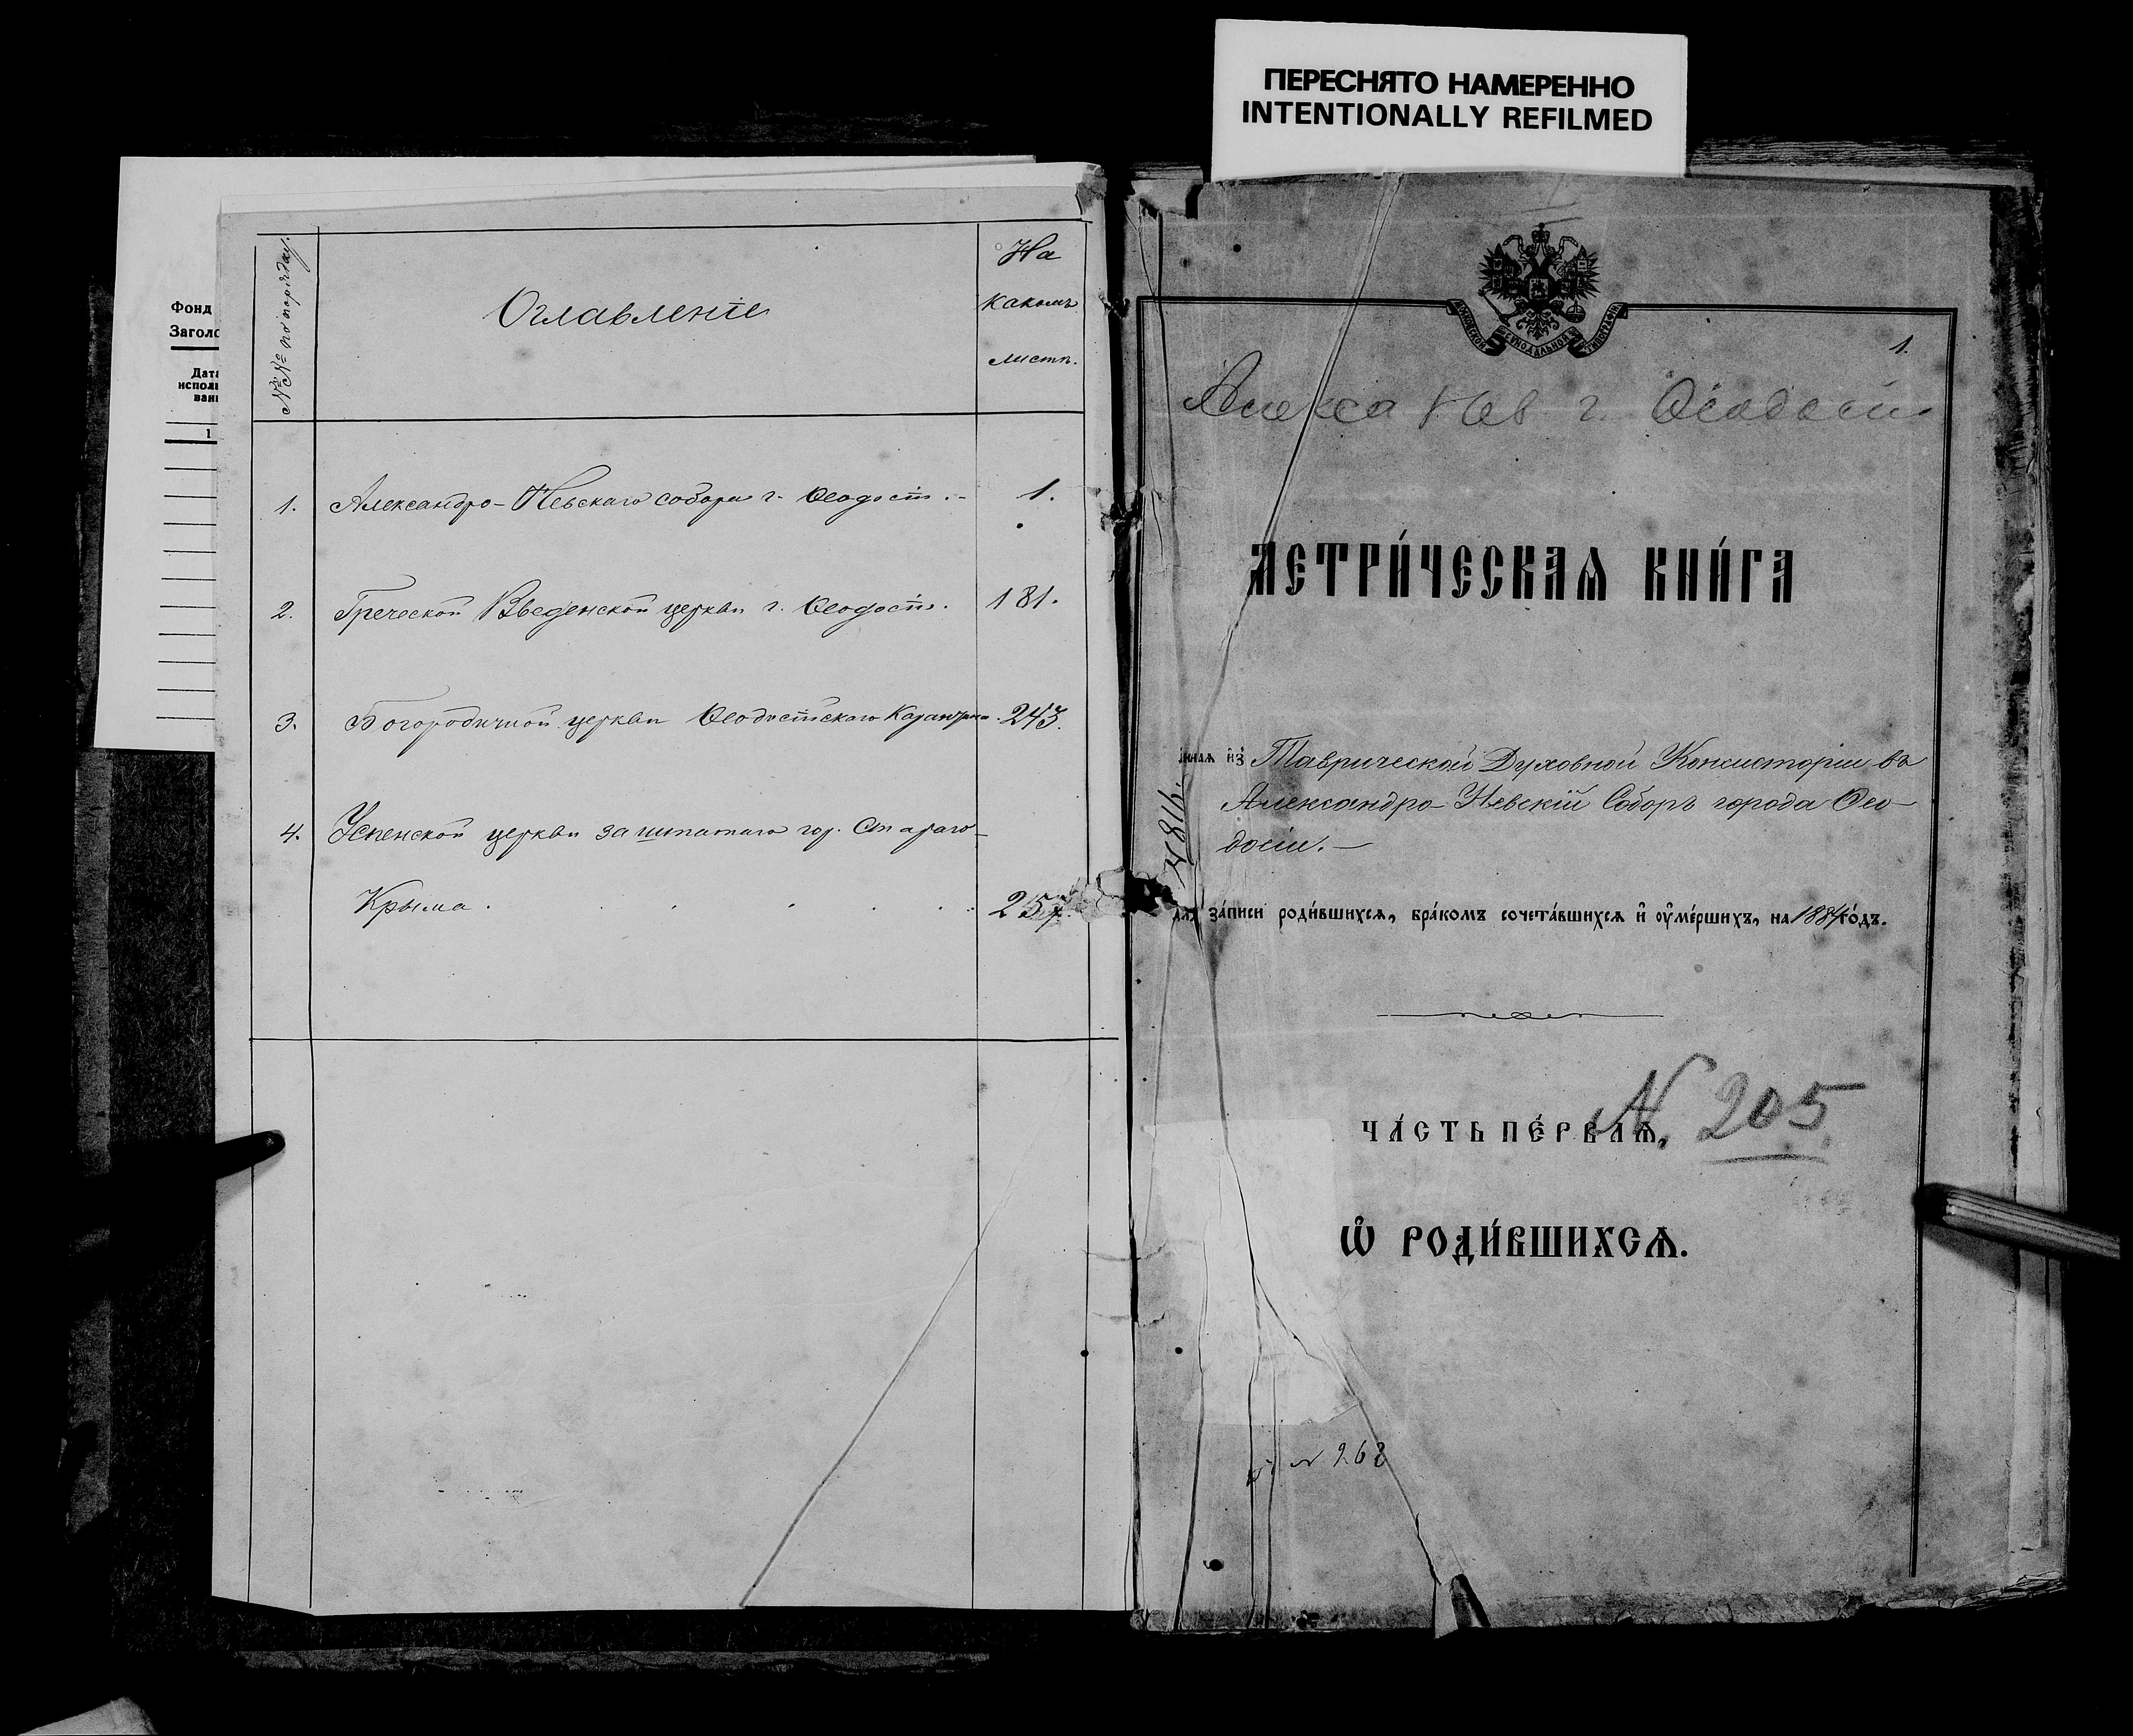 ПЕРЕСНЯТО НАМЕРЕННО
INTENTIONALLY REFILMED
Фонд
Заголо
Дата
исполь
вани
1
№№ по порядку.
Оглавленіе
На
какомъ
листѣ.
1. Александро-Невскаго собора г. Ѳеодосіи. - 1.
2. Греческой Введенской церкви г. Ѳеодосіи. 181.
3. Богородичной церкви Ѳеодосійскаго Карантина. 243.
4. Успенской церкви заштатнаго гор. Стараго-
Крыма . . . . . . 257.
МОСКОВСКОЙ СѴНОДАЛЬНОЙ ТИПОГРАФІИ
1.
Алекса Нев г. Ѳеодосіи
МЕТРИ́ЧЕСКАѦ КНИ́ГА
нная и҆з̾ Таврической Духовной Консисторіи въ
Александро-Невскій Соборъ города Ѳео-
досіи. —
для за́писи роди́вшихсѧ, бра́комъ сочета́вшихсѧ и҆ ᲂу҆ме́ршихъ, на 1884 го́дъ.
ЧА́СТЬ ПЕ́РВАѦ,
N. 205.
Ѡ҆ РОДИ́ВШИХСѦ.
№ 262